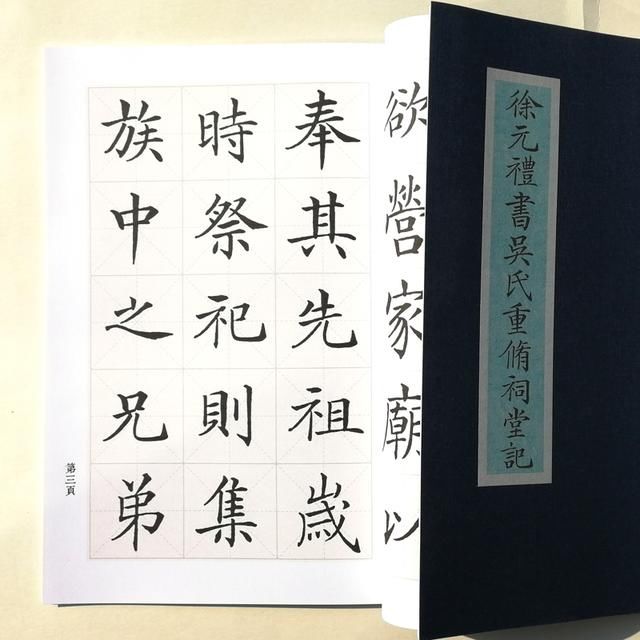 徐元禮書吳氏重脩祠堂記
欲營家廟以
奉其先祖歲
時祭祀則集
族中之兄弟
第三頁